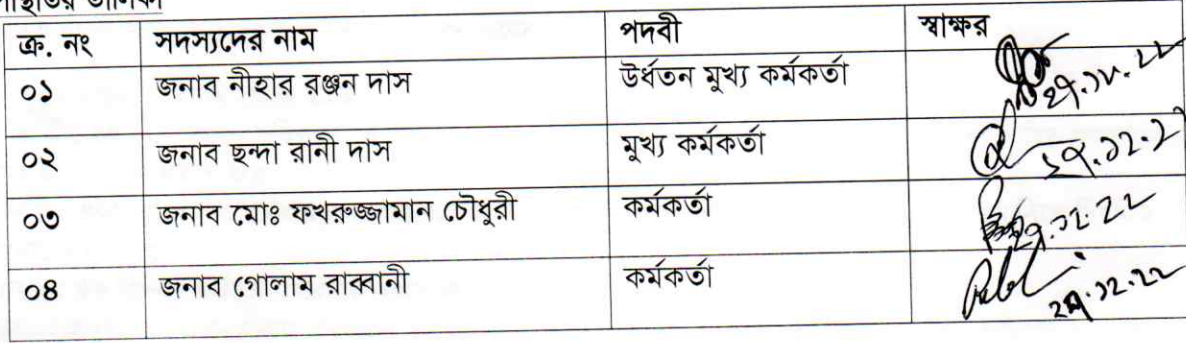 ক্র. নং সদস্যদের নাম পদবী স্বাক্ষর
০১ জনাব নীহার রঞ্জন দাস উর্ধতন মুখ্য কর্মকর্তা
০২ জনাব ছন্দা রানী দাস মুখ্য কর্মকর্তা
০৩ জনাব মোঃ ফখরুজ্জামান চৌধুরী কর্মকর্তা
০৪ জনাব গোলাম রাব্বানী কর্মকর্তা